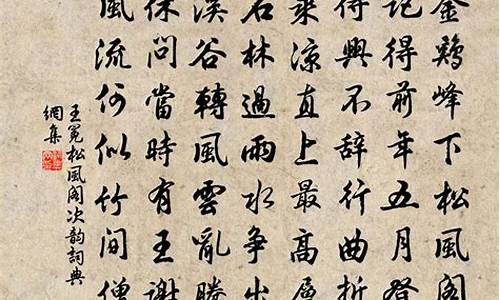 金鷄峰下松風閣
記得前年五月登
得興不辭行曲折
乘凉直上最高層
石林過雨水爭出
溪谷轉風雲亂騰
休問當時有王謝
風流何似竹間僧
王冕松風閣次韵詞典
網集